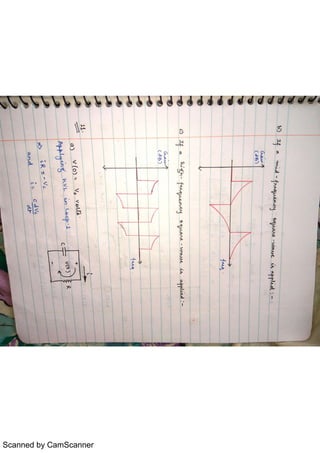 b) If a mid-frequency square-wave is applied :-
Gain
(dB)
freq
c) If a high-frequency square-wave is applied :-
Gain
(dB)
freq
11.
a) V(0) = V₀ volts
Applying KVL in Loop-1
⇒ iR = -Vc
and i = C dVc
dt
i
C
+
V(0)
-
R
Scanned by CamScanner